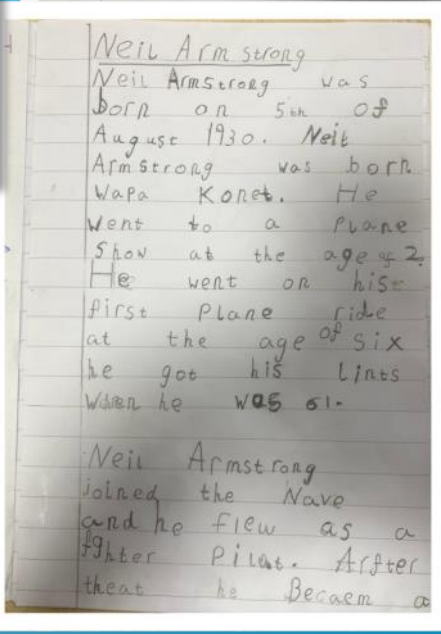 Neil Armstrong
Neil Armstrong was
born on 5th of
August 1930. Neil
Armstrong was born
Wapa Konet. He
went to a Plane
Show at the age of 2.
He went on his
first Plane ride
at the age of six
he got his Lints
when he was
Neil Armstrong
joined the Nave
and he flew as a
fghter Pilat. Arfter
theat he Becaem a